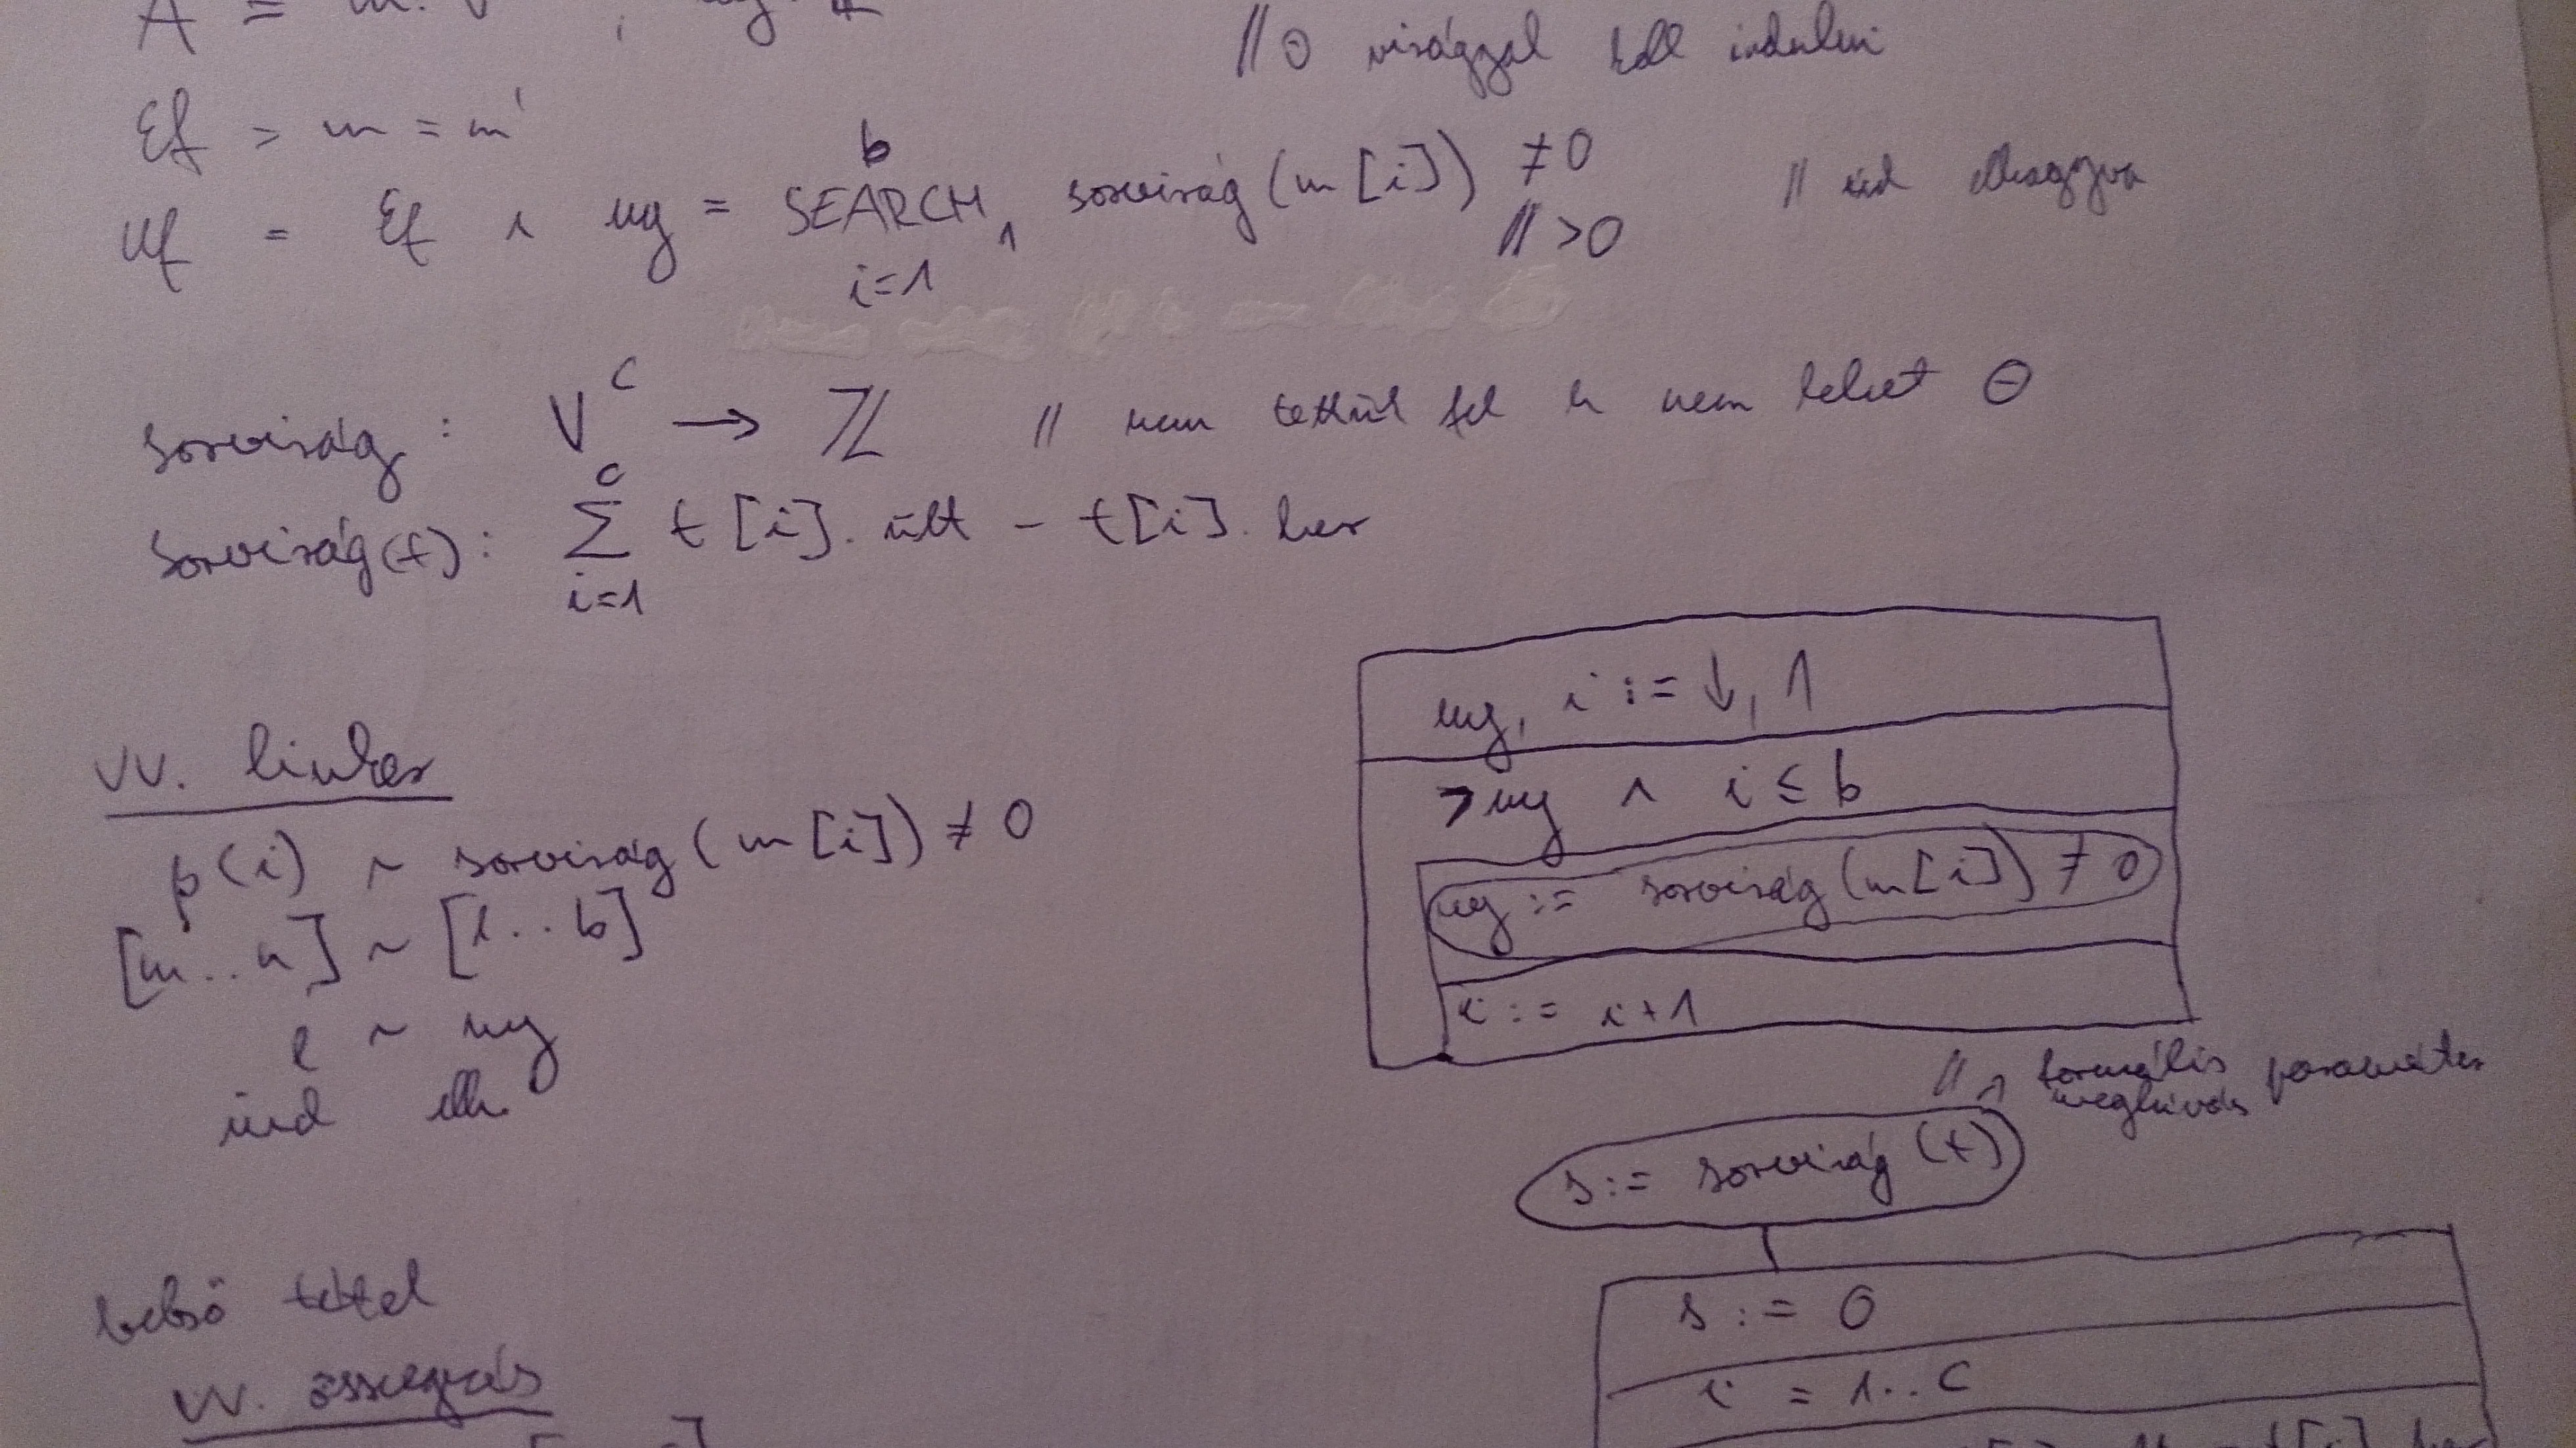 // 0 virággal kell indulni
Ef = m = m'
Uf = Ef ∧ ug = SEARCH₁ sorvirág(m[i]) ≠ 0 // ind elhagyva
b
i=1
// >0
sorvirág : V^C → ℤ // nem tettük fel h nem lehet ⊖
sorvirág(t) : ∑ t[i].ült - t[i].her
c
i=1
vv. linker
p(i) ~ sorvirág(m[i]) ≠ 0
[m..n] ~ [1..b]
l ~ ug
ind elh.
ug, i := ↓, 1
¬ug ∧ i ≤ b
ug := sorvirág(m[i]) ≠ 0
i := i+1
// formális paraméter
meghívás
s := sorvirág(t)
s := 0
i = 1..C
belső tétel
vv. összegzés